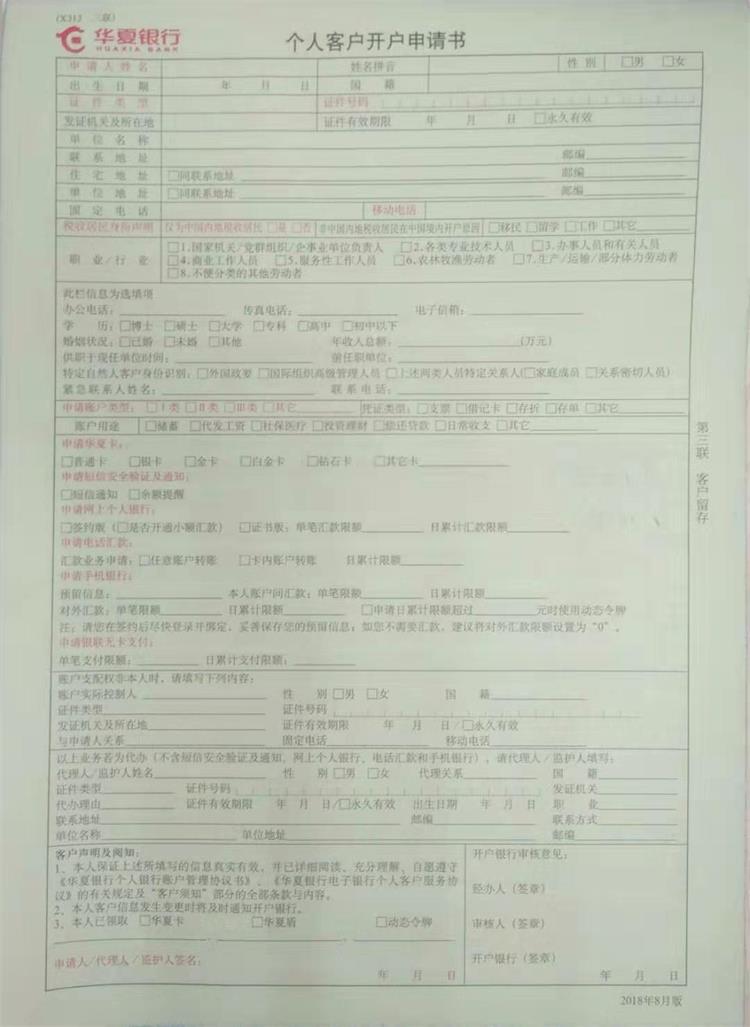 (X313 三联)
华夏银行
HUAXIA BANK
个人客户开户申请书
申请人姓名 姓名拼音 性别 □男 □女
出生日期 年 月 日 国籍
证件类型 证件号码
发证机关及所在地 证件有效期限 年 月 日 □永久有效
单位名称
联系地址 邮编
住宅地址 □同联系地址 邮编
单位地址 □同联系地址 邮编
固定电话 移动电话
税收居民身份声明 仅为中国内地税收居民 □是 □否 非中国内地税收居民在中国境内开户原因 □移民 □留学 □工作 □其它
职业/行业 □1.国家机关/党群组织/企事业单位负责人 □2.各类专业技术人员 □3.办事人员和有关人员
□4.商业工作人员 □5.服务性工作人员 □6.农林牧渔劳动者 □7.生产/运输/部分体力劳动者
□8.不便分类的其他劳动者
此栏信息为选填项
办公电话: 传真电话: 电子信箱:
学历: □博士 □硕士 □大学 □专科 □高中 □初中以下
婚姻状况: □已婚 □未婚 □其他 年收入总额: (万元)
供职于现任单位时间: 前任职单位:
特定自然人客户身份识别: □外国政要 □国际组织高级管理人员 □上述两类人员特定关系人(□家庭成员 □关系密切人员)
紧急联系人姓名: 联系电话:
申请账户类型: □Ⅰ类 □Ⅱ类 □Ⅲ类 □其它 凭证类型: □支票 □借记卡 □存折 □存单 □其它
账户用途 □储蓄 □代发工资 □社保医疗 □投资理财 □偿还贷款 □日常收支 □其它
申请华夏卡:
□普通卡 □银卡 □金卡 □白金卡 □钻石卡 □其它卡
申请短信安全验证及通知:
□短信通知 □余额提醒
申请网上个人银行:
□签约版(□是否开通小额汇款) □证书版: 单笔汇款限额 日累计汇款限额
申请电话汇款:
汇款业务申请: □任意账户转账 □卡内账户转账 日累计限额
申请手机银行:
预留信息: 本人账户间汇款: 单笔限额 日累计限额
对外汇款: 单笔限额 日累计限额 □申请日累计限额超过 元时使用动态令牌
注: 请您在签约后尽快登录并绑定,妥善保存您的预留信息;如您不需要汇款,建议将对外汇款限额设置为“0”。
申请银联无卡支付:
单笔支付限额: 日累计支付限额:
账户支配权非本人时,请填写下列内容:
账户实际控制人 性别 □男 □女 国籍
证件类型 证件号码
发证机关及所在地 证件有效期限 年 月 日/□永久有效
与申请人关系 固定电话 移动电话
以上业务若为代办(不含短信安全验证及通知、网上个人银行、电话汇款和手机银行),请代理人/监护人填写:
代理人/监护人姓名 性别 □男 □女 代理关系 国籍
证件类型 证件号码 发证机关
代办理由 证件有效期限 年 月 日/□永久有效 出生日期 年 月 日 职业
联系地址 邮编 联系方式
单位名称 单位地址 邮编
客户声明及阅知:
1、本人保证上述所填写的信息真实有效,并已详细阅读、充分理解、自愿遵守
《华夏银行个人银行账户管理协议书》、《华夏银行电子银行个人客户服务协
议》的有关规定及“客户须知”部分的全部条款与内容。
2、本人客户信息发生变更时将及时通知开户银行。
3、本人已领取 □华夏卡 □华夏盾 □动态令牌
申请人/代理人/监护人签名:
年 月 日
开户银行审核意见:
经办人(签章)
审核人(签章)
开户银行(签章)
年 月 日
第三联 客户留存
2018年8月版